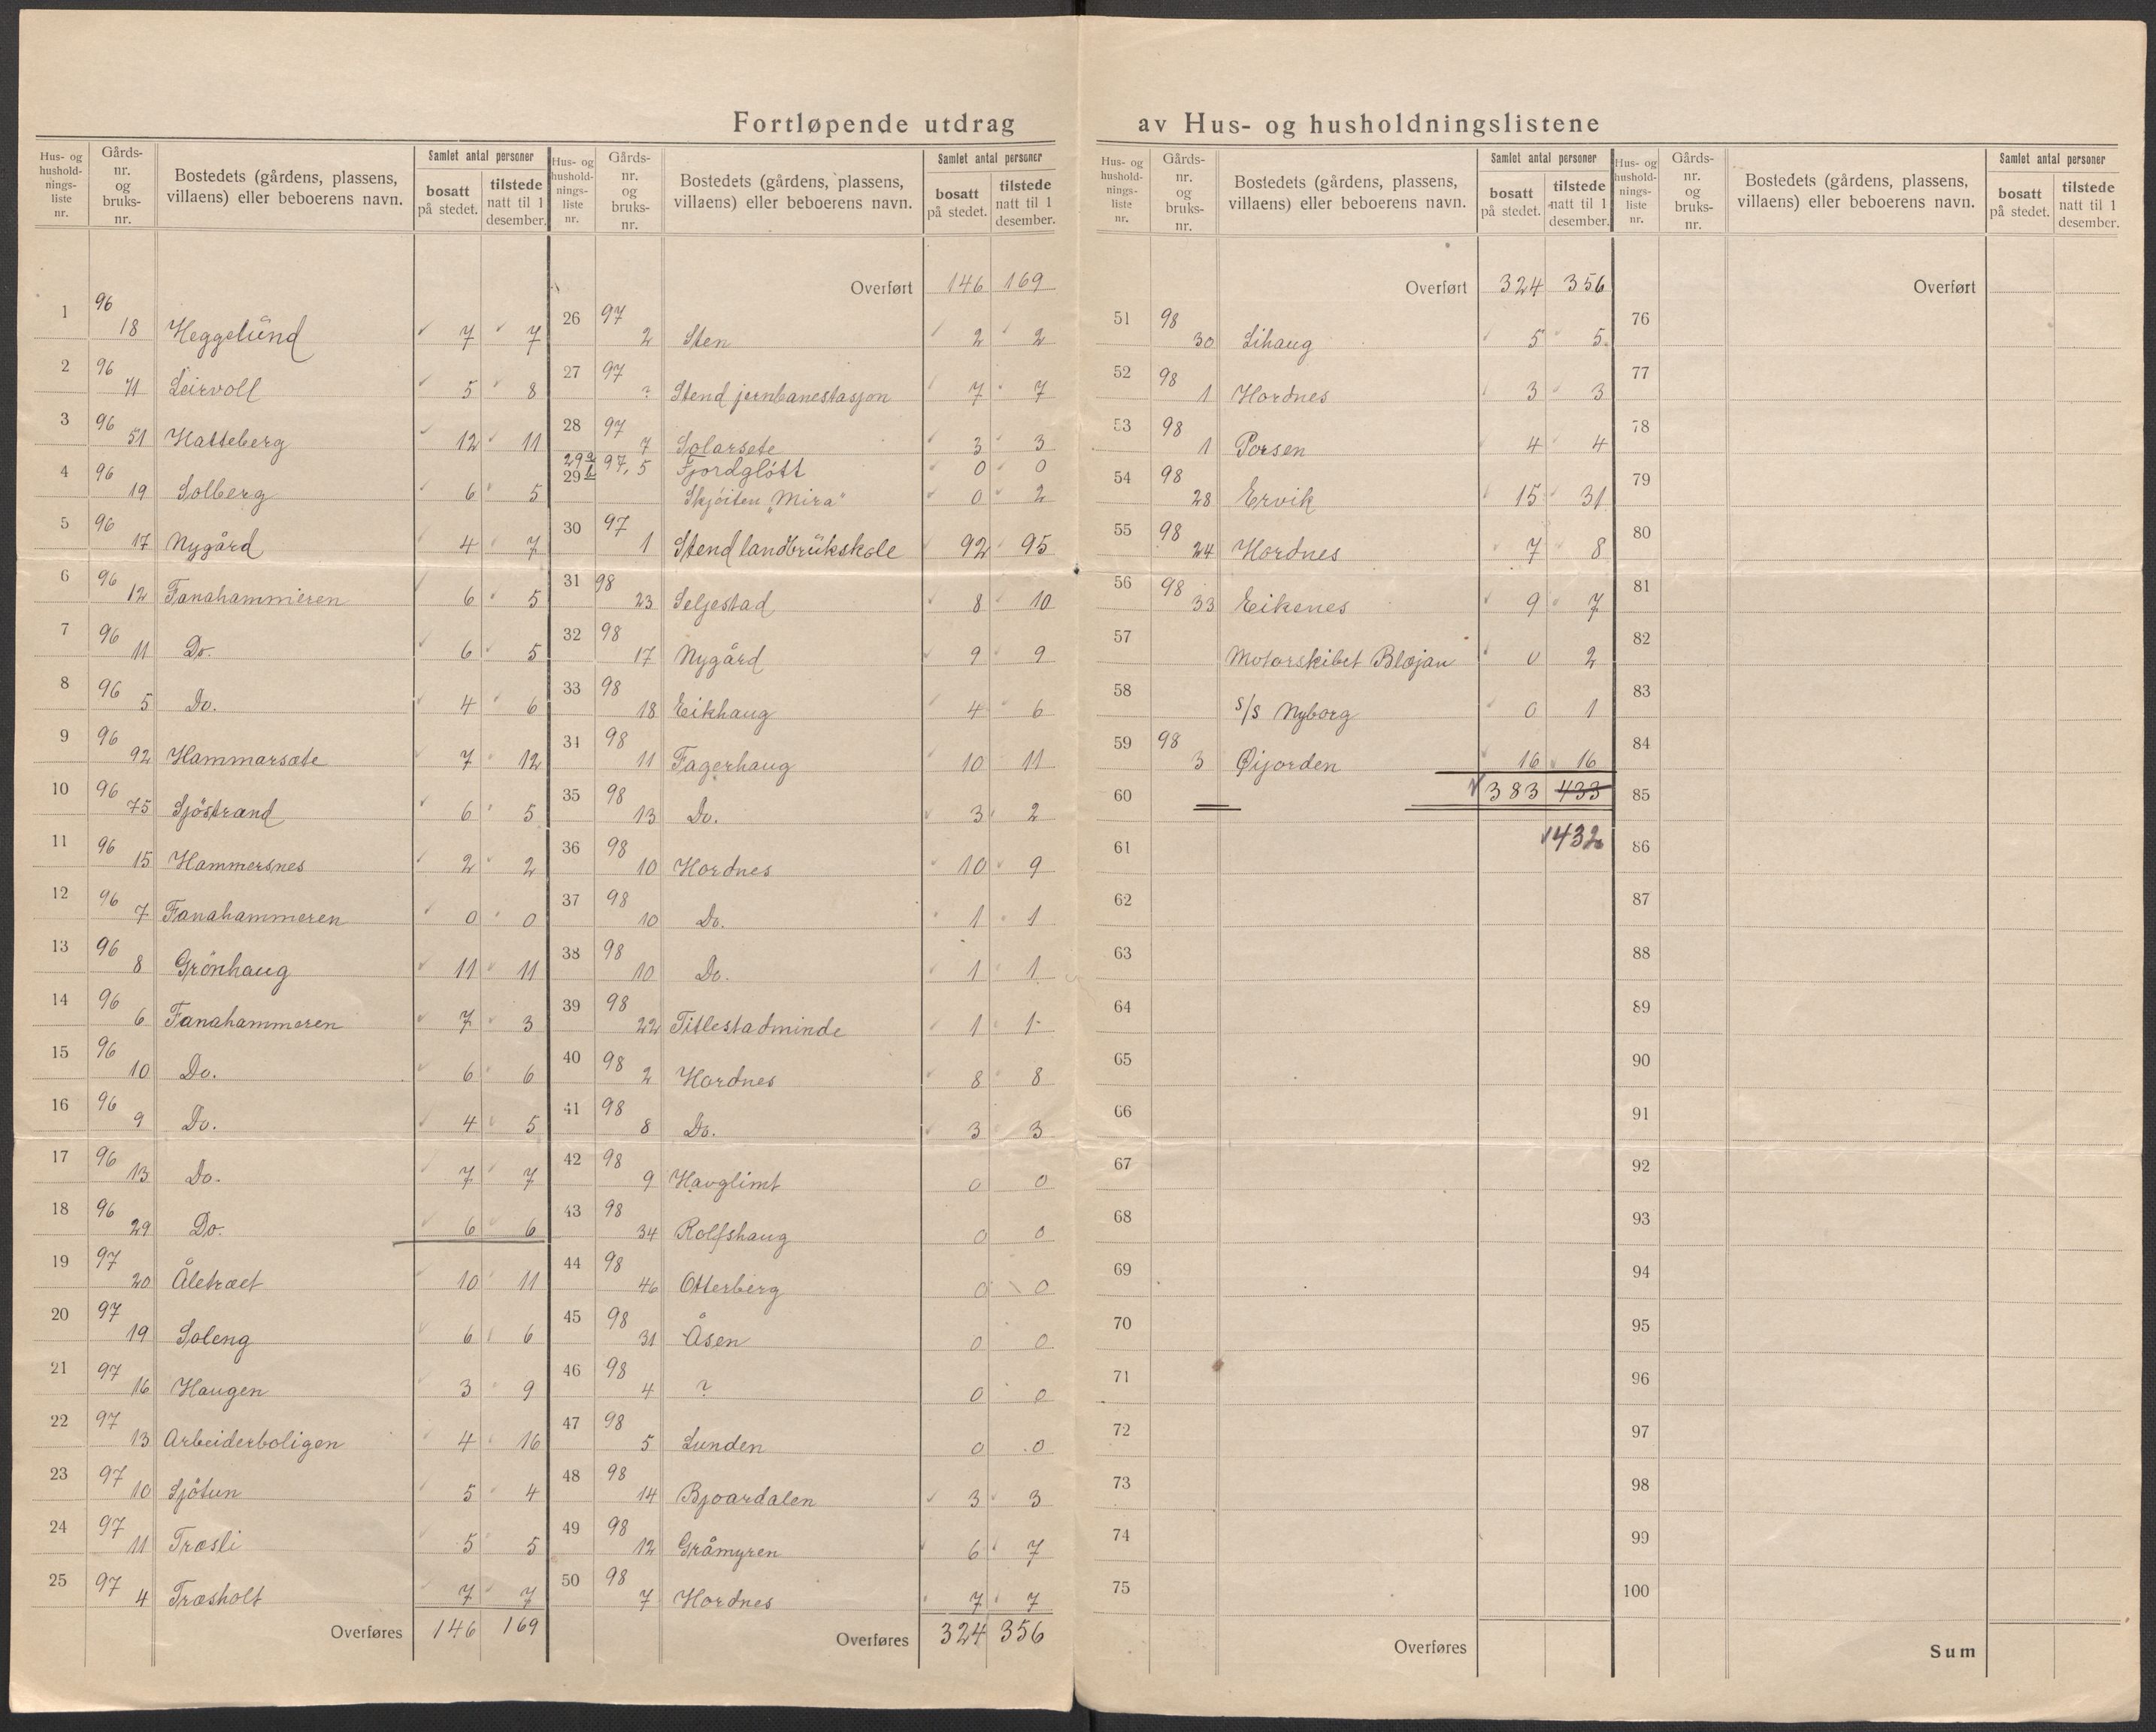 Fortløpende utdrag av Hus- og husholdningslistene
Hus- og hushold-nings-liste nr. Gårds-nr. og bruks-nr. Bostedets (gårdens, plassens, villaens) eller beboerens navn. Samlet antal personer bosatt på stedet. tilstede natt til 1 desember.
1 96 18 Heggelünd 7 7
2 96 71 Leirvoll 5 8
3 96 51 Hatteberg 12 11
4 96 19 Solberg 6 5
5 96 17 Nygård 4 7
6 96 12 Fanahammeren 6 5
7 96 11 Do. 6 5
8 96 5 Do. 4 6
9 96 92 Hammarsæte 7 12
10 96 75 Sjöstrand 6 5
11 96 15 Hammersnes 2 2
12 96 7 Fanahammeren 0 0
13 96 8 Grönhaug 11 11
14 96 6 Fanahammeren 7 3
15 96 10 Do. 6 6
16 96 9 Do. 4 5
17 96 13 Do. 7 7
18 96 29 Do. 6 6
19 97 20 Åletræet 10 11
20 97 19 Soleng 6 6
21 97 16 Haugen 3 9
22 97 13 Arbeiderboligen 4 16
23 97 10 Sjötun 5 4
24 97 11 Træsli 5 5
25 97 4 Træsholt 7 7
Overføres 146 169
Hus- og hushold-nings-liste nr. Gårds-nr. og bruks-nr. Bostedets (gårdens, plassens, villaens) eller beboerens navn. Samlet antal personer bosatt på stedet. tilstede natt til 1 desember.
Overført 146 169
26 97 2 Sten 2 2
27 97 ? Stend jernbanestasjon 7 7
28 97 7 Solarsete 3 3
29 a 97, 5 Fjordglött 0 0
29 b Skjöiten „Mira" 0 2
30 97 1 Stend landbrükskole 92 95
31 98 23 Seljestad 8 10
32 98 17 Nygård 9 9
33 98 18 Eikhaug 4 6
34 98 11 Fagerhaug 10 11
35 98 13 Do. 3 2
36 98 10 Hordnes 10 9
37 98 10 Do. 1 1
38 98 10 Do. 1 1
39 98 22 Titlestadminde 1 1
40 98 2 Hordnes 8 8
41 98 8 Do. 3 3
42 98 9 Havglimt 0 0
43 98 34 Rolfshaug 0 0
44 98 46 Otterberg 0 0
45 98 31 Åsen 0 0
46 98 4 ? 0 0
47 98 5 Lunden 0 0
48 98 14 Bjoardalen 3 3
49 98 12 Gråmyren 6 7
50 98 7 Hordnes 7 7
Overføres 324 356
Hus- og hushold-nings-liste nr. Gårds-nr. og bruks-nr. Bostedets (gårdens, plassens, villaens) eller beboerens navn. Samlet antal personer bosatt på stedet. tilstede natt til 1 desember.
Overført 324 356
51 98 30 Lihaug 5 5
52 98 1 Hordnes 3 3
53 98 1 Porsen 4 4
54 98 28 Ervik 15 31
55 98 24 Hordnes 7 8
56 98 33 Eikenes 9 7
57 Motorskibet Blæjan 0 2
58 s/s Nyborg 0 1
59 98 3 Øijorden 16 16
60 383 433
61 432
62
63
64
65
66
67
68
69
70
71
72
73
74
75
Overføres
Hus- og hushold-nings-liste nr. Gårds-nr. og bruks-nr. Bostedets (gårdens, plassens, villaens) eller beboerens navn. Samlet antal personer bosatt på stedet. tilstede natt til 1 desember.
Overført
76
77
78
79
80
81
82
83
84
85
86
87
88
89
90
91
92
93
94
95
96
97
98
99
100
Sum